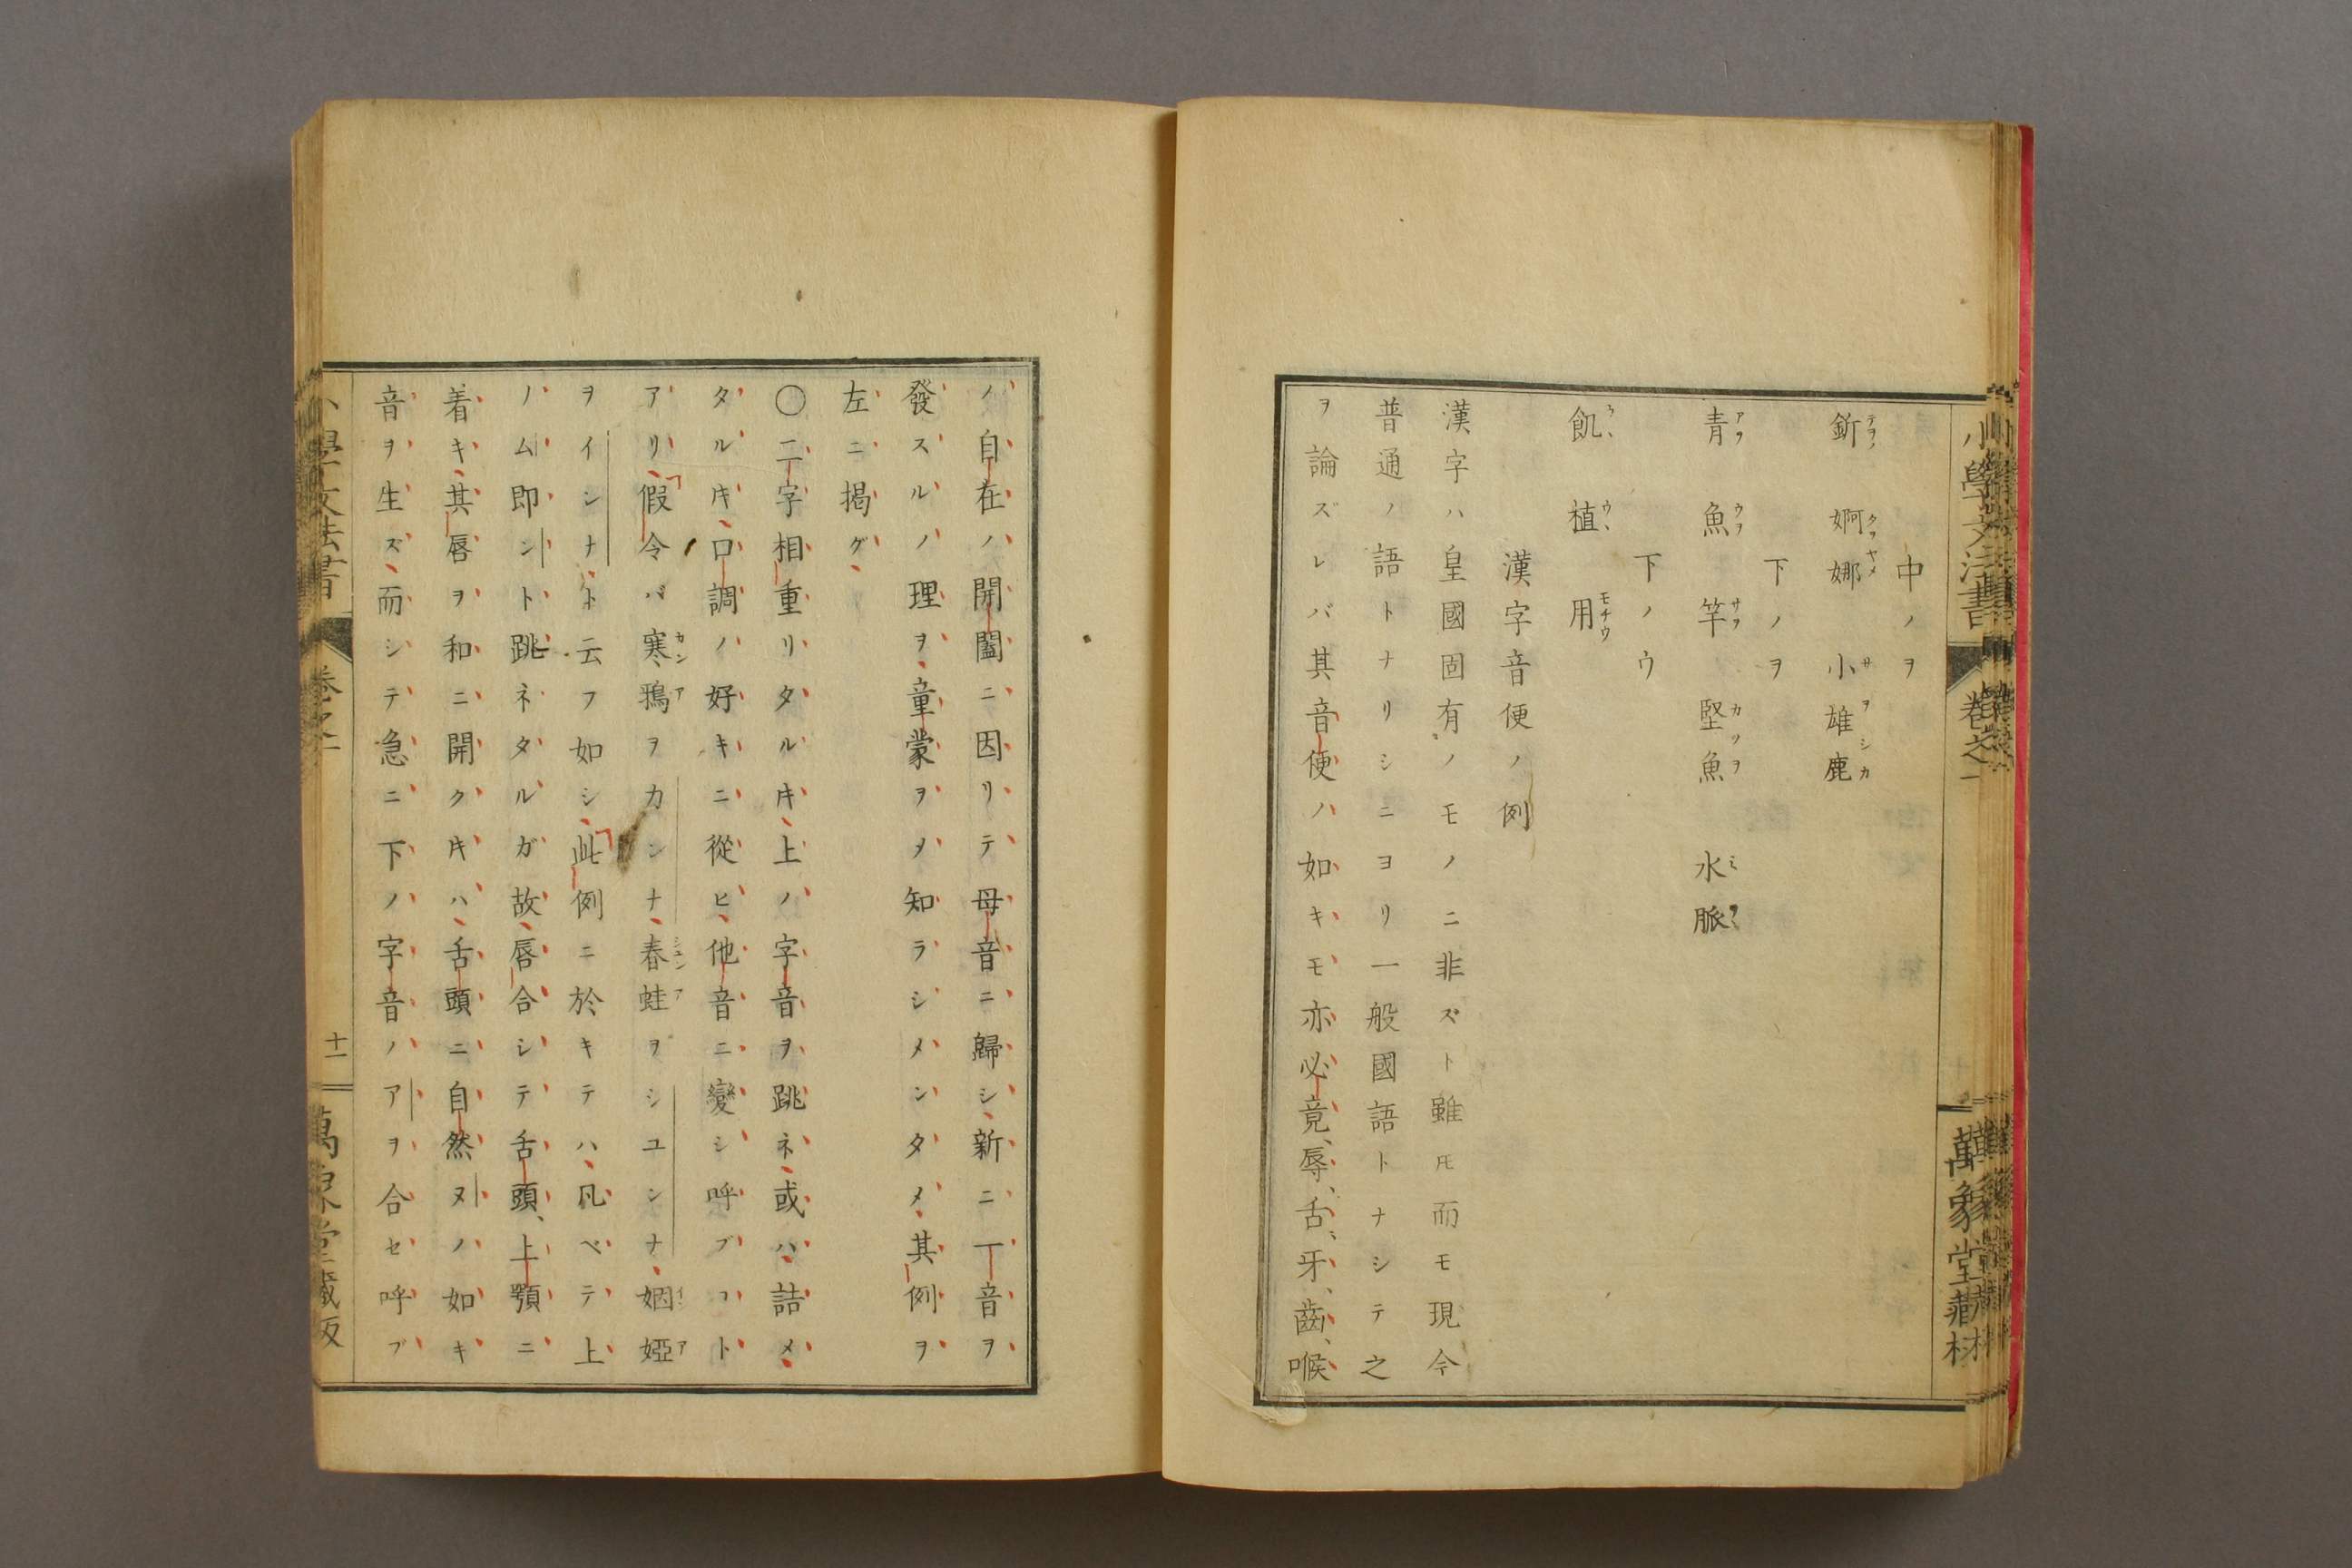 小學文法書 卷之一 萬象堂藏
中ノヲ
釿 婀娜 小雄鹿
下ノヲ
青 魚 竿 堅魚 水脈
下ノウ
飢 植 用
漢字音便ノ例
漢字ハ皇國固有ノモノニ非ズト雖𪜈而モ現今
普通ノ語トナリシニヨリ一般國語トナシテ之
ヲ論ズレバ其音便ハ如キモ亦必竟、辱、舌、牙、齒、喉
ノ自在ノ開闔ニ因リテ母音ニ歸シ新ニ一音ヲ
發スルノ理ヲ童蒙ヲメ知ラシメンタメ其例ヲ
左ニ掲グ
〇二字相重リタルキ上ノ字音ヲ跳ネ或ハ詰メ
タルキ口調ノ好キニ從ヒ他音ニ變シ呼ブヿト
アリ假令バ寒鴉ヲカンナ春蛙ヲシユンナ姻婭
ヲインナト云フ如シ此例ニ於キテハ凡ベテ上
ノム即ント跳ネタルガ故唇合シテ舌頭、上顎ニ
着キ其唇ヲ和ニ開クキハ舌頭ニ自然ヌノ如キ
音ヲ生ズ而シテ急ニ下ノ字音ノアヲ合セ呼ブ
小學文法書 卷之一 十一 萬象堂藏版